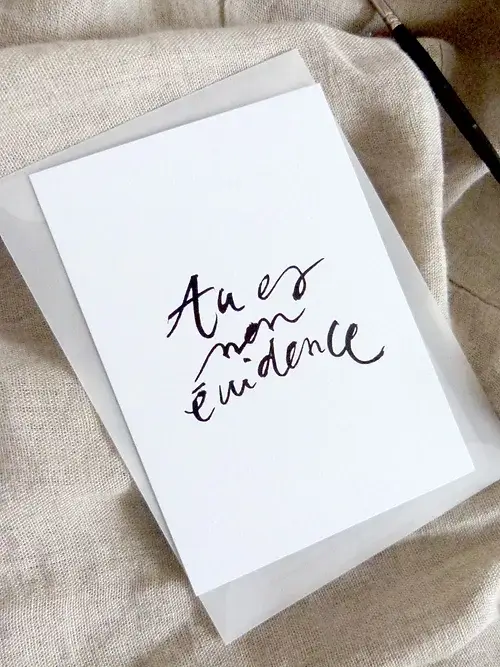 Tu es
mon
évidence